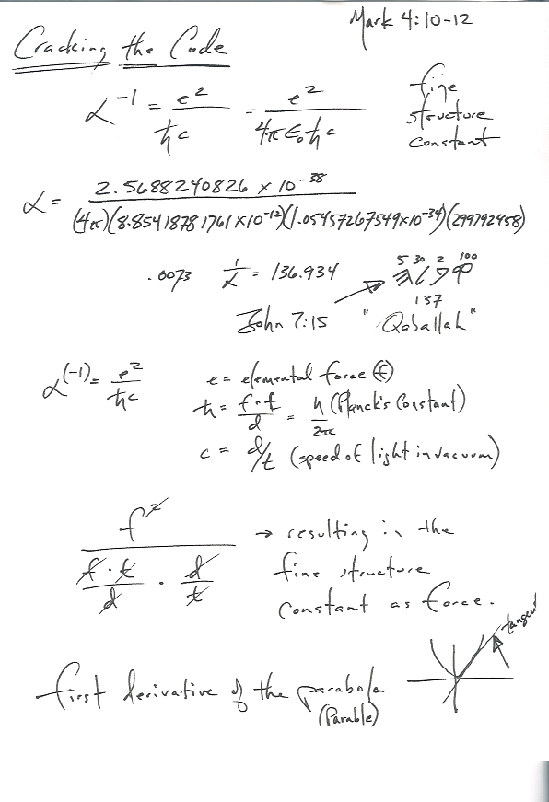 Mark 4:10-12
Cracking the Code
α⁻¹ = e²/ħc = e²/4πε₀ħc
fine structure constant
α = 2.5688240826 x 10⁻³⁸ / (4π)(8.85418781761x10⁻¹²)(1.05457267549x10⁻³⁴)(299792458)
.0073 1/α = 136.934
5 30 2 100
137
John 7:15 "Qaballah"
α⁽⁻¹⁾ = e²/ħc
e = elemental force (f)
ħ = f·t/d = h/2π (Planck's Constant)
c = d/t (speed of light in vacuum)
f² / (f·t/d · d/t)
→ resulting in the
fine structure
constant as force.
tangent
first derivative of the parabola
(Parable)